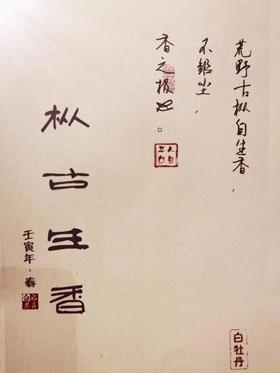 荒野古枞自生香，
不尘，
香之也。
枞古生香
壬寅年·春
白牡丹